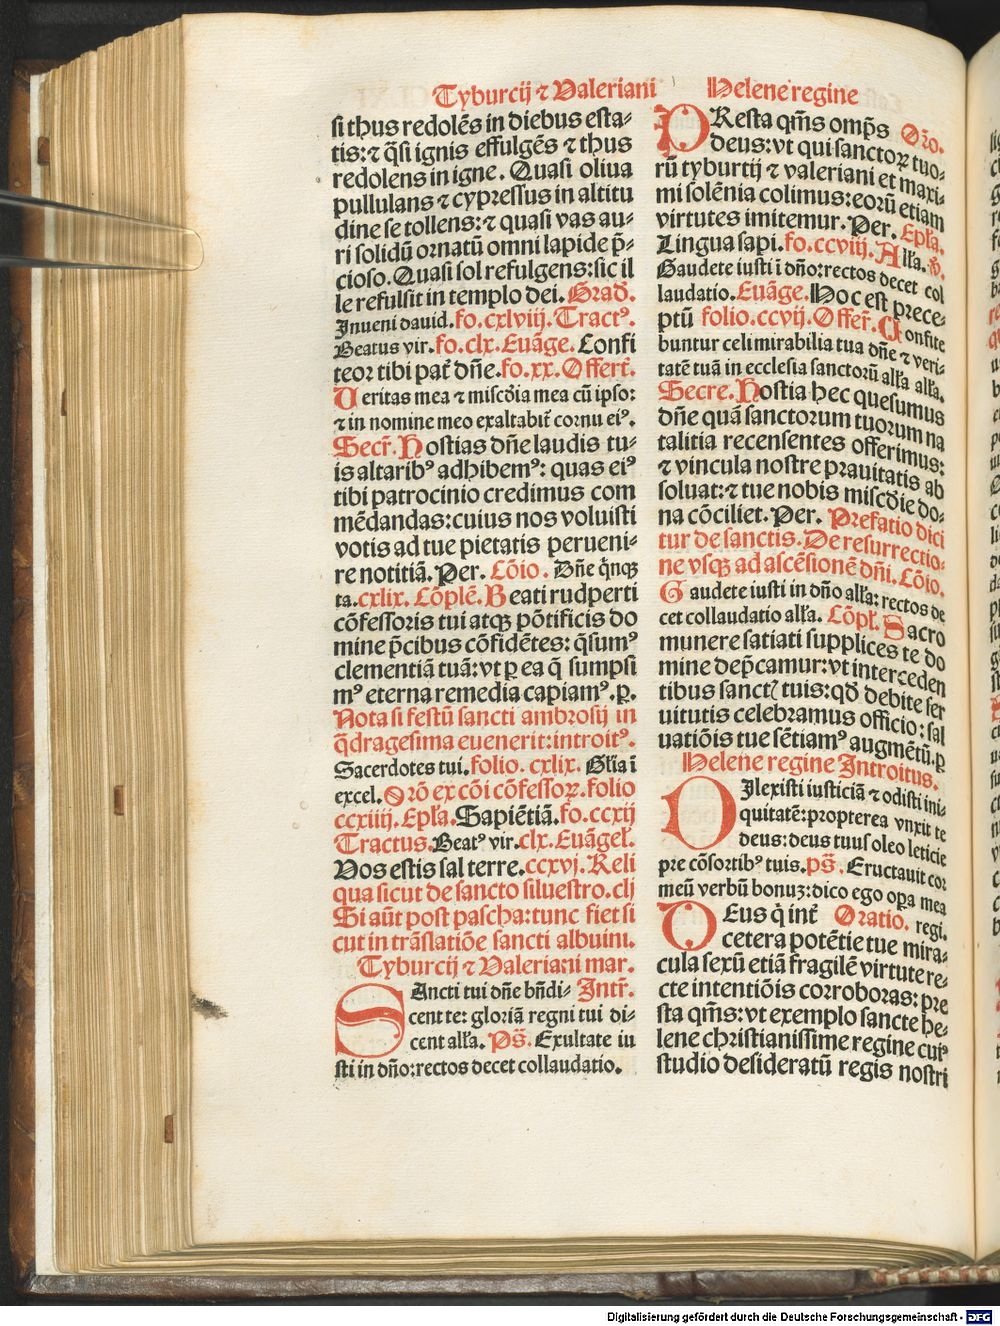 Tyburcij ⁊ Valeriani
si thus redolẽs in diebus esta⸗
tis: ⁊ q̃si ignis effulgẽs ⁊ thus
redolens in igne. Quasi oliua
pullulans ⁊ cypressus in altitu
dine se tollens: ⁊ quasi vas au⸗
ri solidũ ornatũ omni lapide p̃⸗
cioso. Quasi sol refulgens: sic il
le refulsit in templo dei. Grad̃.
Inueni dauid. fo. cxlviij. Tractꝰ.
Beatus vir. fo. clx. Euãge. Confi
teor tibi pat̃ dñe. fo. xx. Offert̃.
Veritas mea ⁊ misc̃dia mea cũ ipso:
⁊ in nomine meo exaltabit̃ cornu eiꝰ.
Secr̃. Hostias dñe laudis tu⸗
is altaribꝰ adhibemꝰ: quas eiꝰ
tibi patrocinio credimus com
mẽdandas: cuius nos voluisti
votis ad tue pietatis perueni⸗
re notitiã. Per. Cõio. Dñe q̃nqꝫ
ta. cxlix. Cõplẽ. Beati rudperti
cõfessoris tui atqꝫ põtificis do
mine p̃cibus cõfidẽtes: q̃sumꝰ
clementiã tuã: vt ꝑ ea q̃ sumpsi
mꝰ eterna remedia capiamꝰ. ꝑ.
Nota si festũ sancti ambrosij in
q̃dragesima euenerit: introitꝰ.
Sacerdotes tui. folio. cxlix. Gl̃ia ĩ
excel. Orõ ex cõi cõfessoꝝ. folio
ccxiiij. Epl̃a. Sapiẽtiã. fo. ccxij
Tractus. Beatꝰ vir. clx. Euãgel̃.
Vos estis sal terre. ccxvj. Reli
qua sicut de sancto siluestro. clj
Si aũt post pascha: tunc fiet si
cut in trãslatiõe sancti albuini.
Tyburcij ⁊ Valeriani mar.
Sancti tui dñe bñdi⸗ Intr̃.
cent te: gloriã regni tui di⸗
cent all̃a. Ps̃. Exultate iu
sti in dño: rectos decet collaudatio.
Helene regine
PResta qm̃s omp̃s Oro.
deus: vt qui sanctoꝝ tuo⸗
rũ tyburtij ⁊ valeriani et maxi⸗
mi solẽnia colimus: eorũ etiam
virtutes imitemur. Per. Epl̃a.
Lingua sapi. fo. ccviij. All̃a. ℣.
Gaudete iusti ĩ dño: rectos decet col
laudatio. Euãge. Hoc est prece⸗
ptũ folio. ccvij. Offer̃. Confite
buntur celi mirabilia tua dñe ⁊ veri⸗
tatẽ tuã in ecclesia sanctorũ all̃a all̃a.
Secre. Hostia hec quesumus
dñe quã sanctorum tuorum na
talitia recensentes offerimus:
⁊ vincula nostre prauitatis ab
soluat: ⁊ tue nobis misc̃die do⸗
na cõciliet. Per. Prefatio dici
tur de sanctis. De resurrectio⸗
ne vsqꝫ ad ascẽsionẽ dñi. Cõio.
Gaudete iusti in dño all̃a: rectos de
cet collaudatio all̃a. Cõpl̃. Sacro
munere satiati supplices te do
mine dep̃camur: vt interceden
tibus sanctꝭ tuis: qđ debite ser
uitutis celebramus officio: sal
uatiõis tue sẽtiamꝰ augmẽtũ. ꝑ
Helene regine Introitus.
DIlexisti iusticiã ⁊ odisti ini⸗
quitatẽ: propterea vnxit te
deus: deus tuus oleo leticie
pre cõsortibꝰ tuis. ps̃. Eructauit cor
meũ verbũ bonuꝫ: dico ego oꝑa mea
DEus q̃ int̃ Oratio. regi.
cetera potẽtie tue mira⸗
cula sexũ etiã fragilẽ virtute re⸗
cte intentiõis corroboras: pre
sta qm̃s: vt exemplo sancte he⸗
lene christianissime regine cuiꝰ
studio desideratũ regis nostri
Digitalisierung gefördert durch die Deutsche Forschungsgemeinschaft - DFG